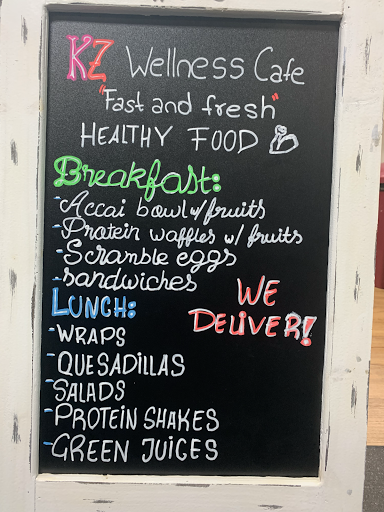 KZ Wellness Cafe
"Fast and fresh"
HEALTHY FOOD
Breakfast:
-Accai bowl w/fruits
-Protein waffles w/ fruits
-Scramble eggs
-sandwiches
LUNCH:
WE
DELIVER!
-WRAPS
-QUESADILLAS
-SALADS
-PROTEIN SHAKES
-GREEN JUICES